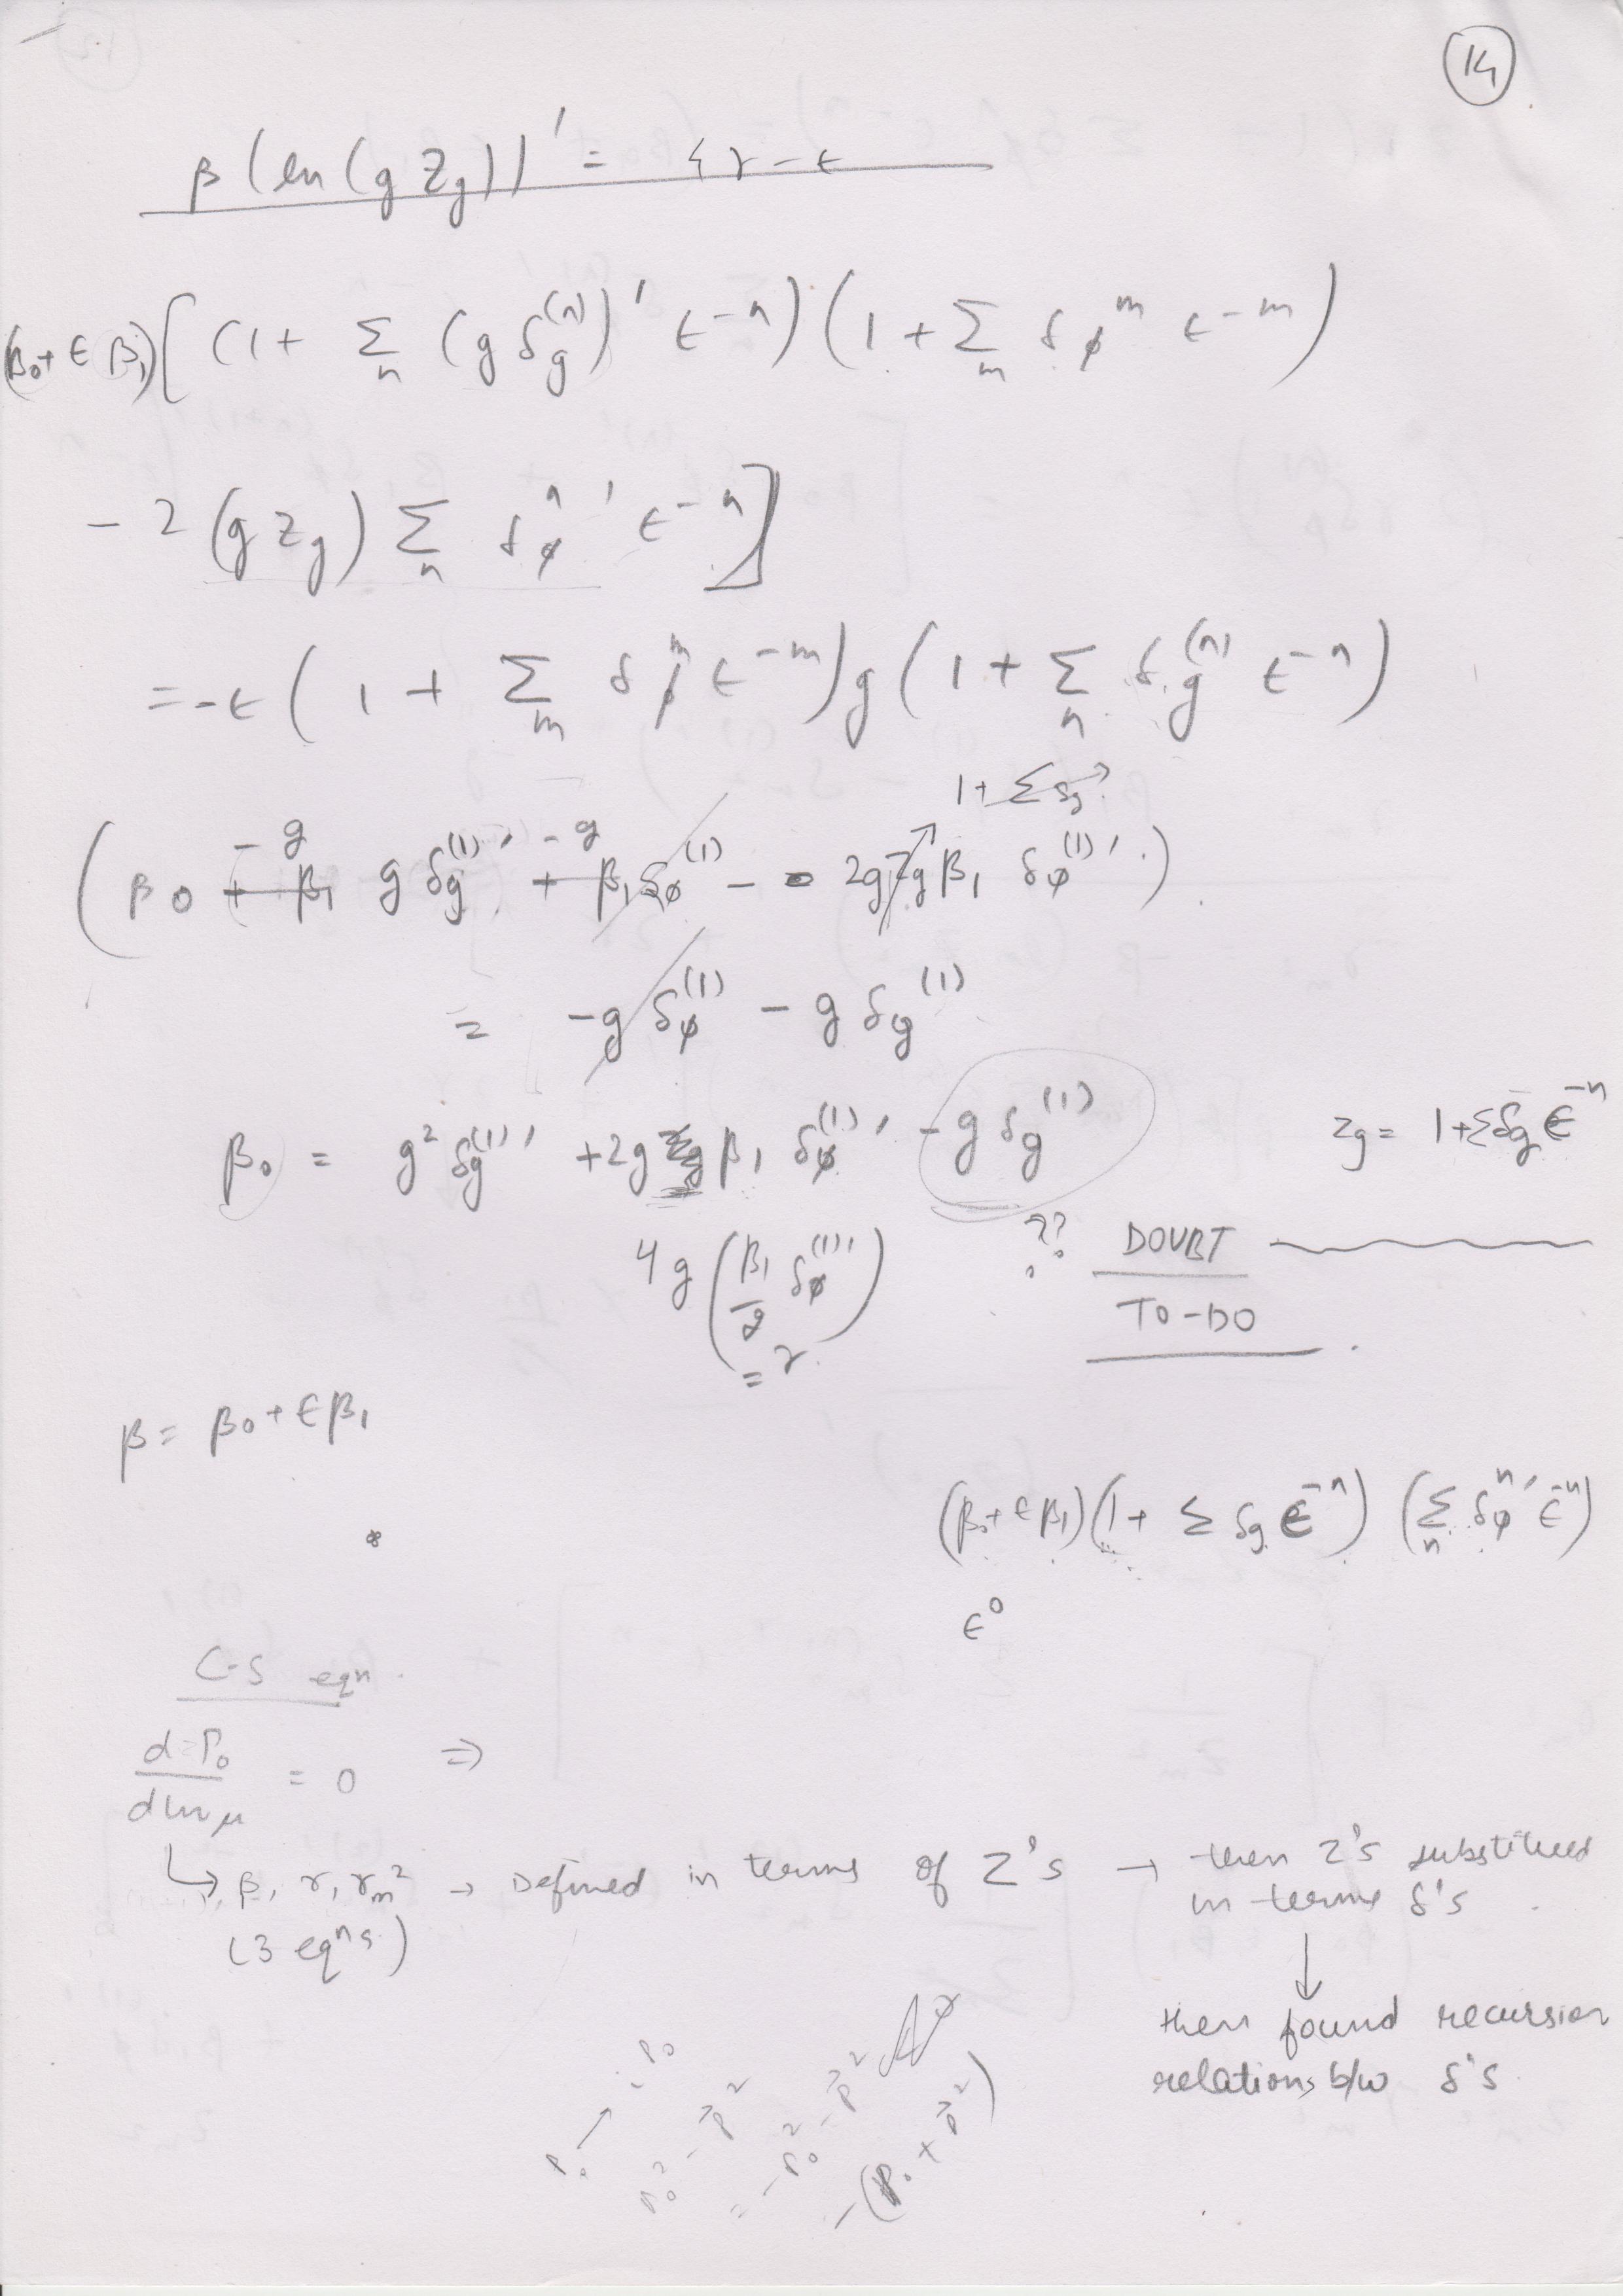 14
β (ln (g Zg))' = 4γ - ϵ
(β0 + ϵ β1) [ (1 + Σn (g δg^(n))' ϵ^-n) (1 + Σm δϕ^m ϵ^-m)
- 2 (g Zg) Σn δϕ^n ' ϵ^-n ]
= -ϵ (1 + Σm δϕ^m ϵ^-m) g (1 + Σn δg^(n) ϵ^-n)
1 + Σ δg?
- g - g
( β0 + β1 g δg^(1)' + β1 δϕ^(1) - 2g Zg β1 δϕ^(1)' )
= -g δϕ^(1) - g δg^(1)
β0 = g² δg^(1)' + 2g β1 δϕ^(1)' - g δg^(1)
Zg = 1 + Σ δg ϵ^-n
4g ( β1/2 δϕ^(1)' ) = γ
?? DOUBT
TO-DO
β = β0 + ϵ β1
(β0 + ϵ β1) (1 + Σ δg ϵ^-n) (Σn δϕ^n ' ϵ^-n)
ϵ^0
C-S eqn.
d Γ0 / d ln μ = 0 ⇒
↳ β, γ, γm² → Defined in terms of Z's → then Z's substituted
in terms δ's
(3 eqns)
↓
then found recursion
relations b/w δ's
P0 → -P0
P0² - P⃗²
= -P0² - P⃗²
-(P0 + P⃗²)